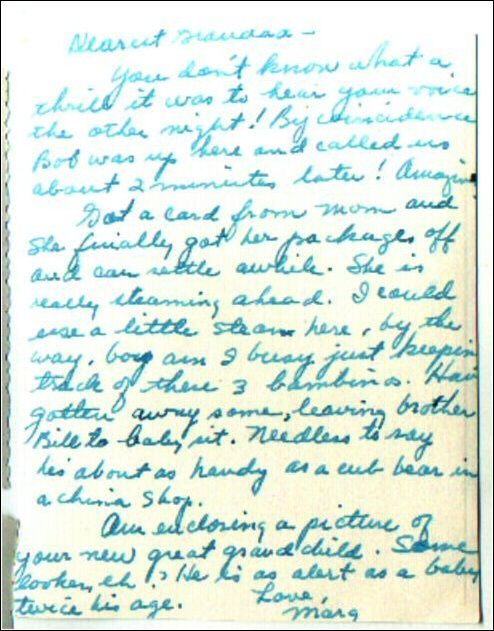 Dearest Grandad -
You don't know what a
thrill it was to hear your voice
the other night! By coincidence
Bob was up here and called us
about 2 minutes later! Amazin
Got a card from Mom and
she finally got her packages off
and can settle awhile. She is
really steaming ahead. I could
use a little steam here, by the
way, boy am I busy just keepin
track of these 3 bambinos. Hav
gotten away some, leaving brother
Bill to baby sit. Needless to say
his about as handy as a cub bear in
a china shop.
Am enclosing a picture of
your new great grandchild. Some
looker, eh? He is as alert as a baby
twice his age. Love,
Marg